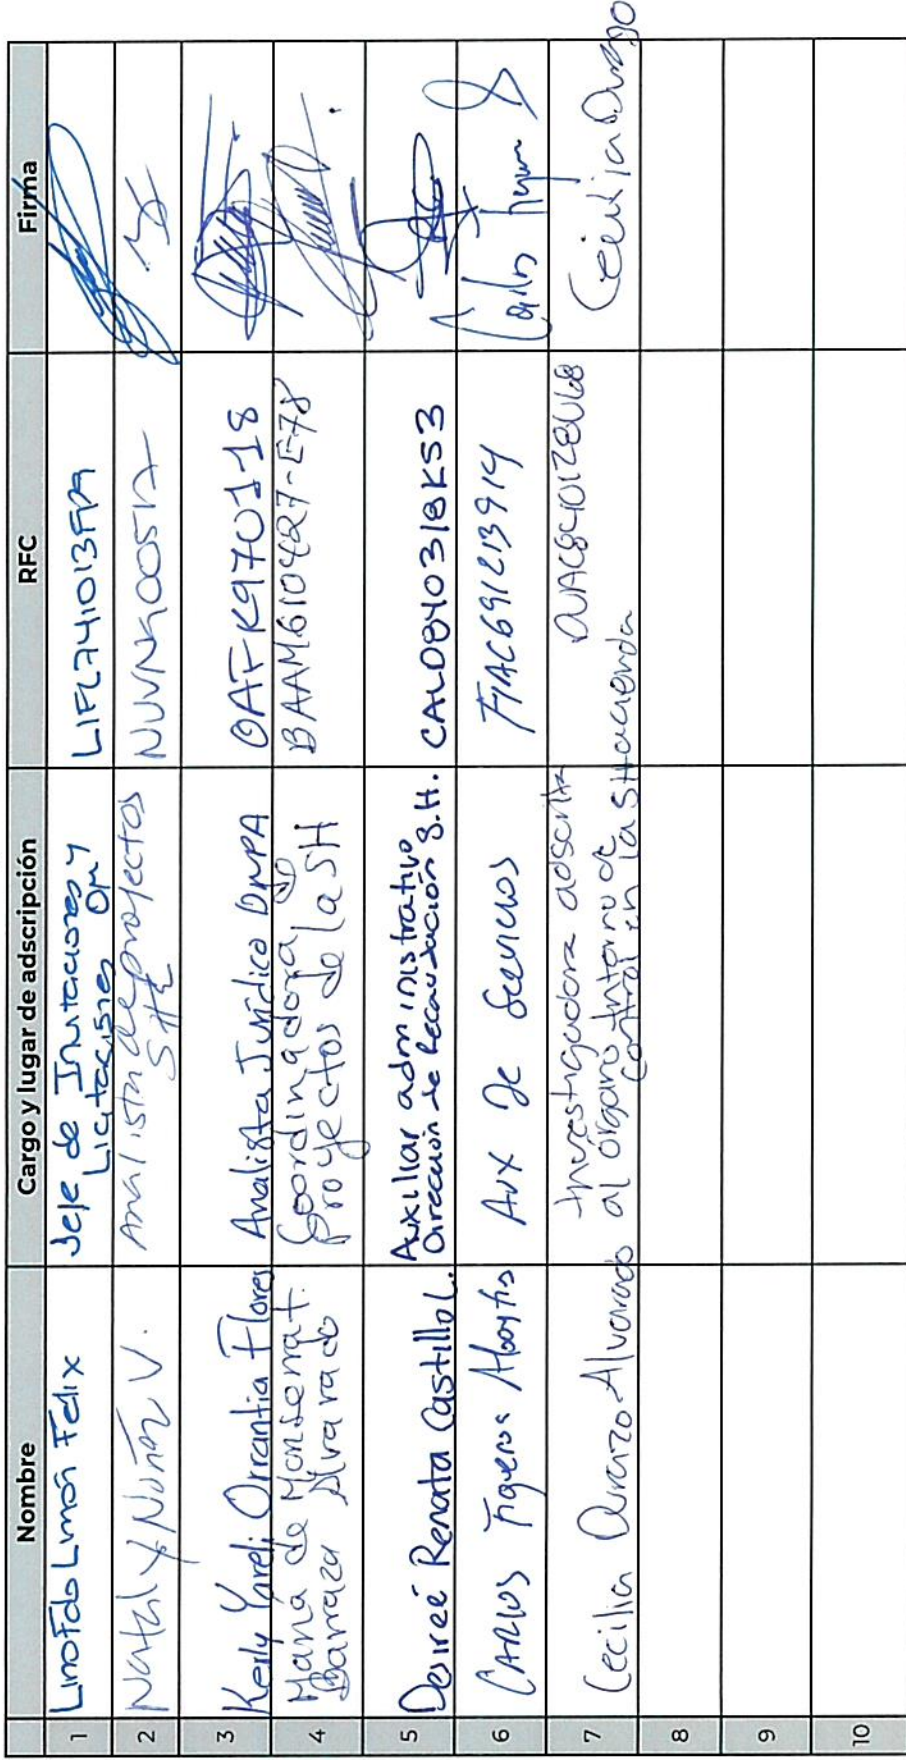 Nombre Cargo y lugar de adscripción RFC Firma
1 Lino Fdo Limón Felix Jefe de Invitaciones y
Licitaciones OM LIFL741013FPA
2 Nataly Nuñez V. Analista de proyectos
SHE
3 Kerly Yareli Orrantia Flores Analista Jurídico DNPA OAFK970118
4 María de Monserrat. Coordinadora de BAAM610427-E78
Barraza Alvarado Proyectos de la SH
5 Desireé Renata Castillo L. Auxiliar administrativo
Dirección de Recaudación S.H. CALD840318KS3
6 CARLOS Figueroa Aboytes Aux de Servicios FIAC691213914 Carlos
7 Cecilia Durazo Alvarado Investigadora adscrita
al órgano interno de
Control en la SHacienda Cecilia Durazo
8
9
10